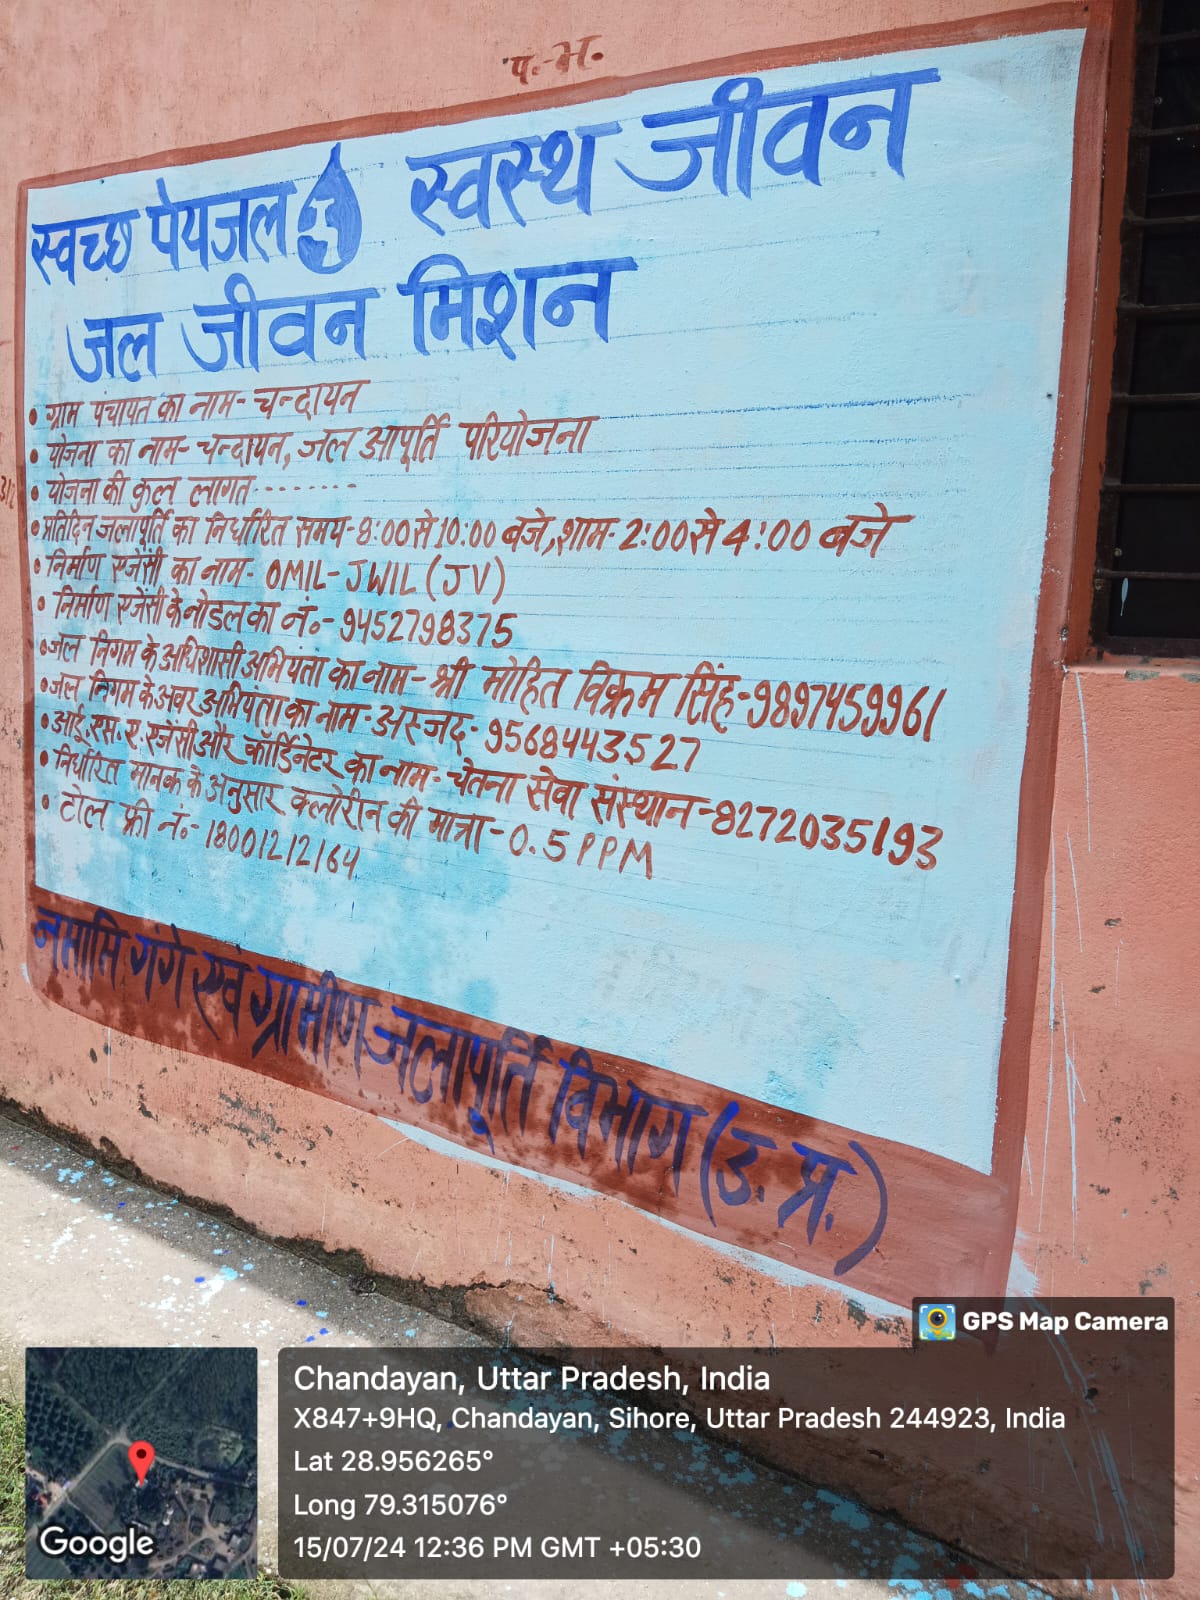 प.-भ.
स्वच्छ पेयजल स्वस्थ जीवन
जल जीवन मिशन
• ग्राम पंचायत का नाम- चन्दायन
• योजना का नाम- चन्दायन, जल आपूर्ति परियोजना
• योजना की कुल लागत--------
• प्रतिदिन जलापूर्ति का निर्धारित समय-8:00 से 10:00 बजे, शाम- 2:00 से 4:00 बजे
• निर्माण एजेंसी का नाम- OMIL-JWIL (JV)
• निर्माण एजेंसी के नोडल का नं०-9452798375
• जल निगम के अधिशासी अभियंता का नाम- श्री मोहित विक्रम सिंह-9897459961
• जल निगम के अवर अभियंता का नाम- अस्जद- 9568443527
• आई.एस.ए. एजेंसी और कॉर्डिनेटर का नाम- चेतना सेवा संस्थान-8272035193
• निर्धारित मानक के अनुसार क्लोरीन की मात्रा- 0.5 PPM
• टोल फ्री नं०- 18001212164
नमामि गंगे एवं ग्रामीण जलापूर्ति विभाग (उ.प्र.)
GPS Map Camera
Chandayan, Uttar Pradesh, India
X847+9HQ, Chandayan, Sihore, Uttar Pradesh 244923, India
Lat 28.956265°
Long 79.315076°
15/07/24 12:36 PM GMT +05:30
Google